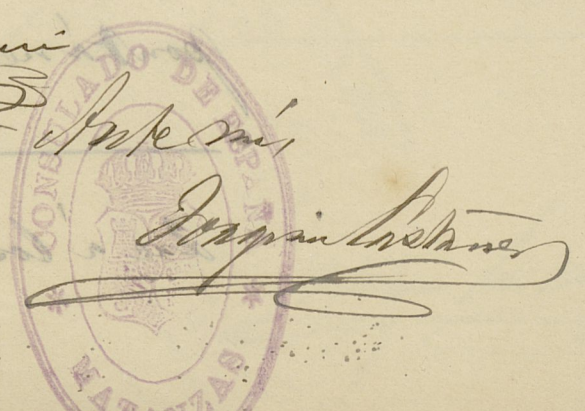 CONSULADO DE ESPAÑA
MATANZAS
Ante mí,
Joaquin